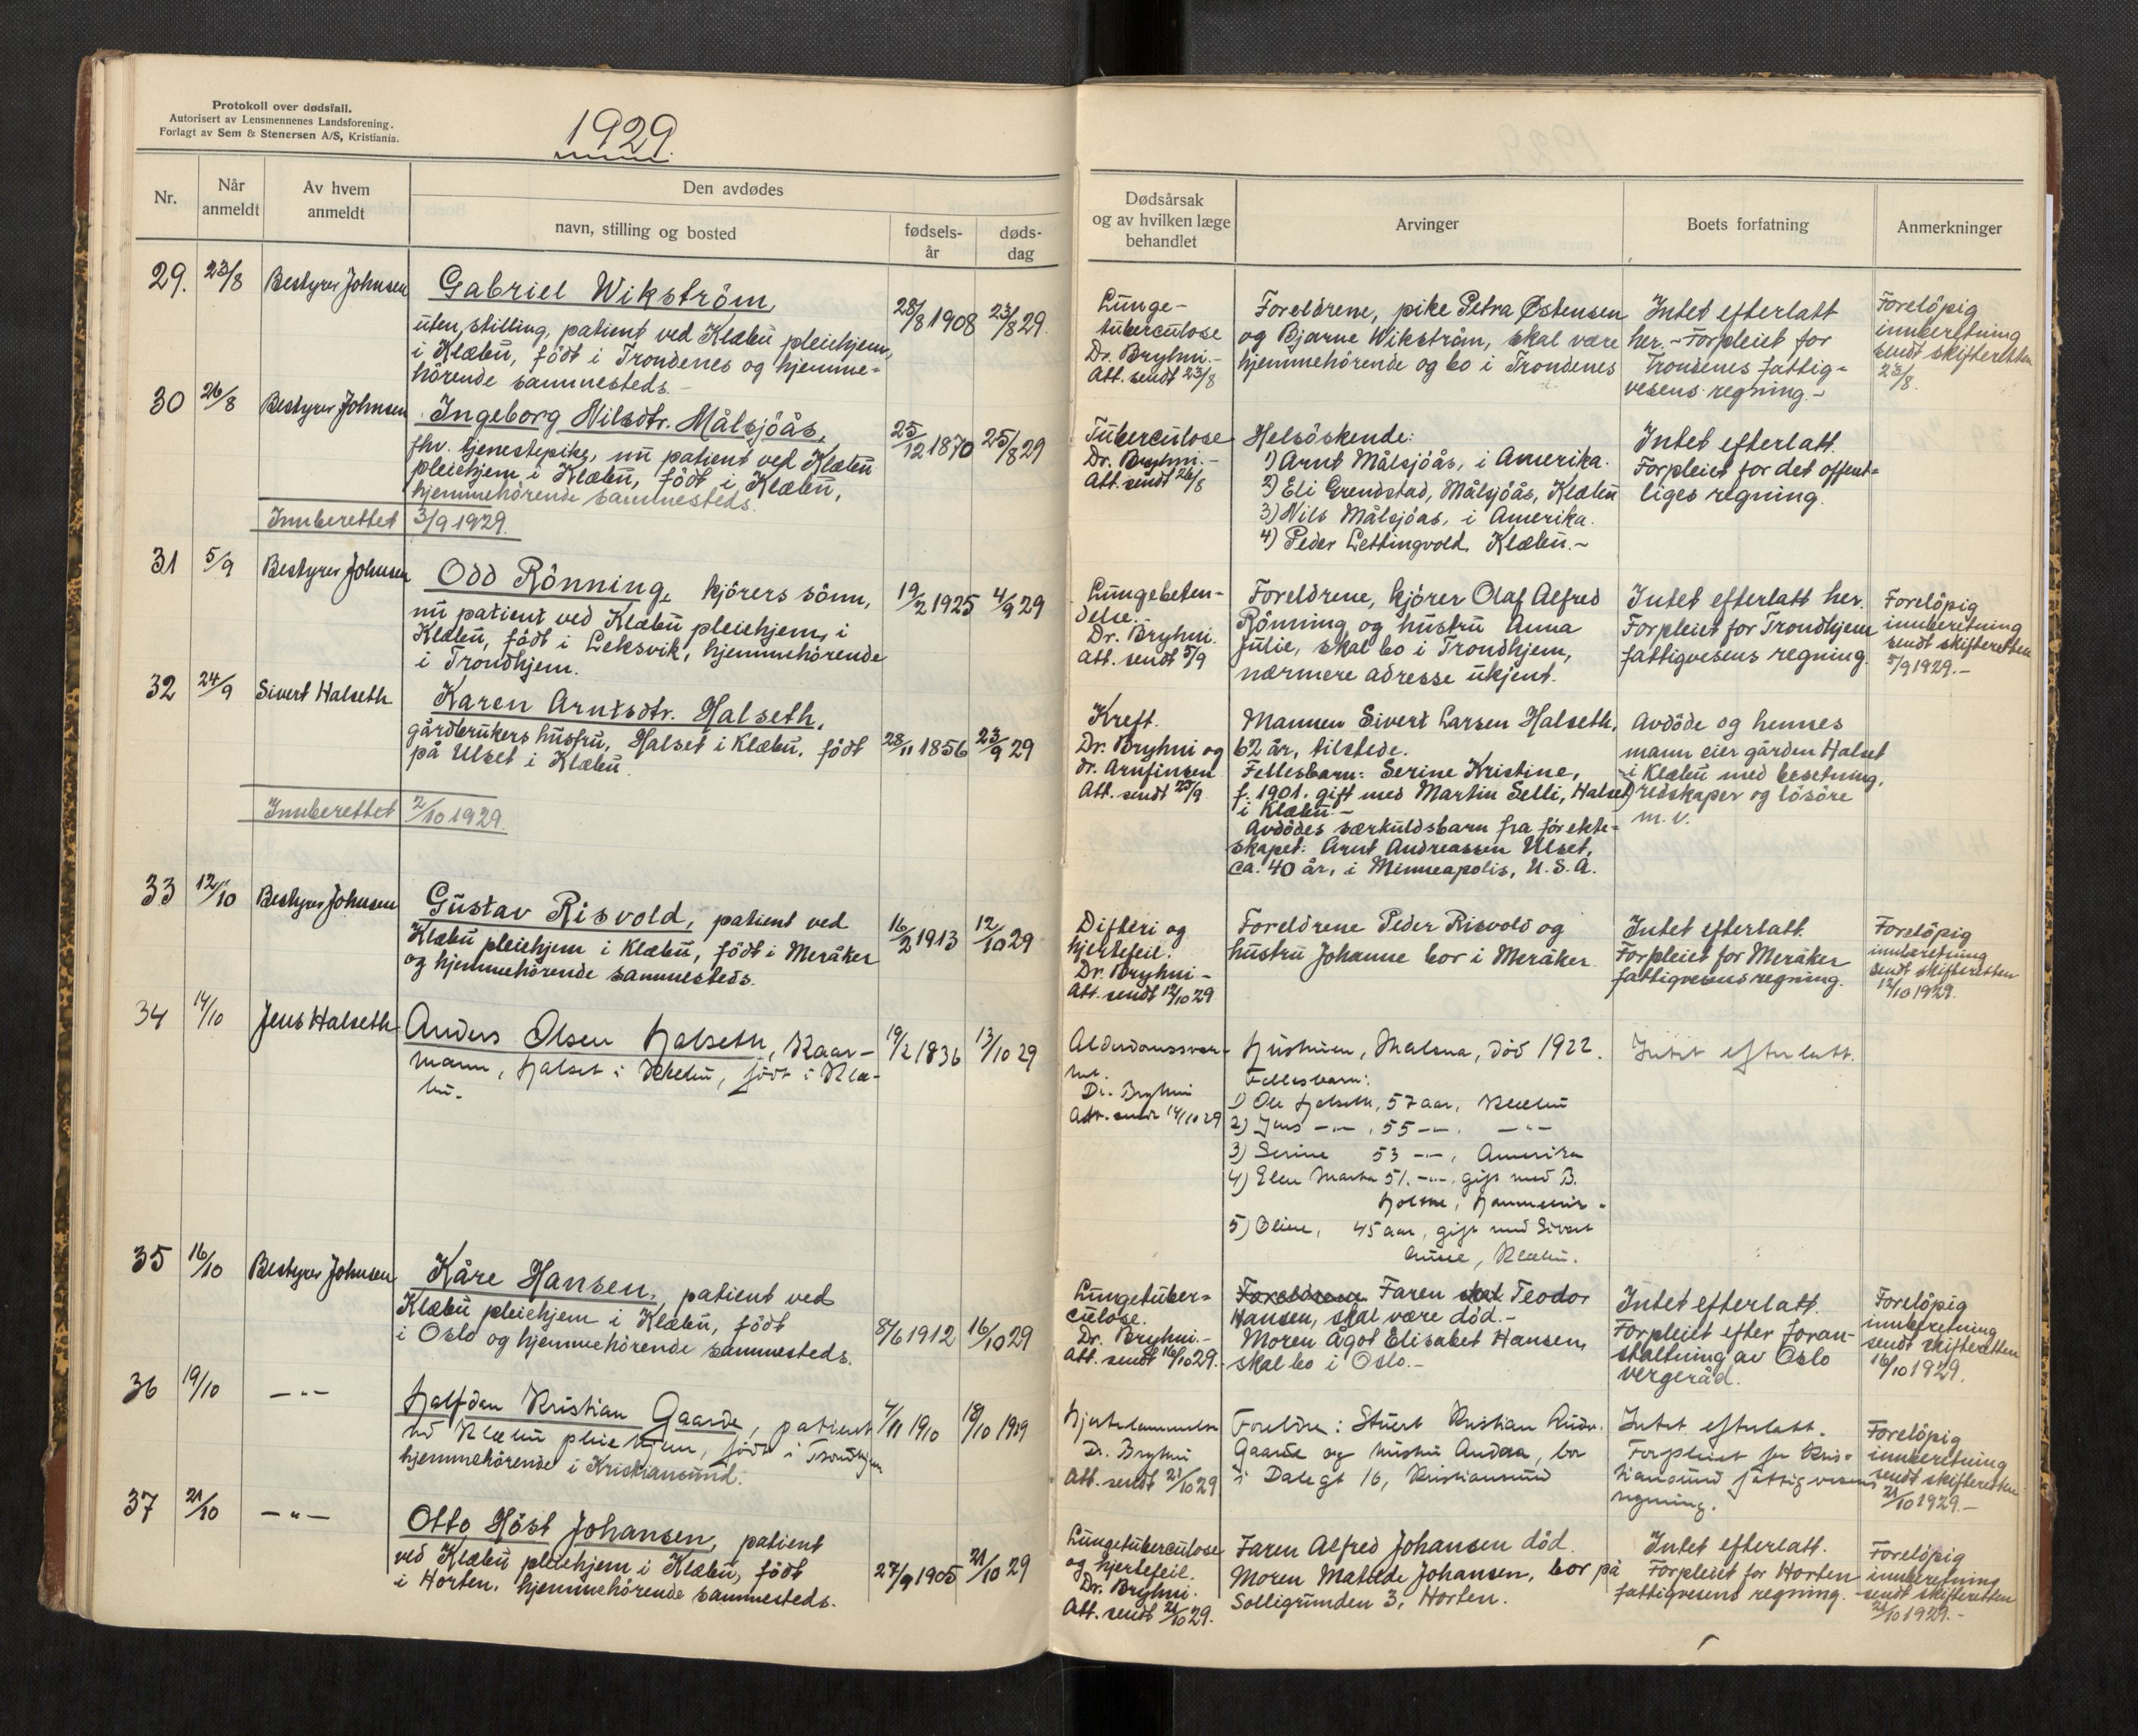 Protokoll over dødsfall.
Autorisert av Lensmennenes Landsforening.
Forlagt av Sem & Stenersen A/S, Kristiania.
1929.
Nr.
Når
anmeldt
Av hvem
anmeldt
Den avdødes
navn, stilling og bosted
fødsels-
år
døds-
dag
Dødsårsak
og av hvilken læge
behandlet
Arvinger
Boets forfatning
Anmerkninger
29. 23/8 Bestyrer Johnsen
Gabriel Wikström,
uten stilling, patient ved Klæbu pleiehjem,
i Klæbu, födt i Trondenes og hjemme=
hörende sammesteds.-
28/8 1908 23/8 29.
Lunge-
tuberculose
Dr. Bryhni.-
Att. sendt 23/8
Foreldrene, pike Petra Østensen
og Bjarne Wikström, skal være
hjemmehörende og bo i Trondenes
Intet efterlatt
her.- Forpleiet for
Trondenes fattig=
vesens regning.-
Forelöpig
innberetning
sendt skifteretten
23/8.
30 26/8 Bestyrer Johnsen
Ingeborg Nilsdtr. Målsjöås,
fhv. tjenestepike, nu patient ved Klæbu
pleiehjem i Klæbu, födt i Klæbu,
hjemmehörende sammesteds.
25/12 1870 25/8 29
Innberettet 3/9 1929.
Tuberculose
Dr. Bryhni.-
Att. sendt 26/8
Helsöskende:
1) Arnt Målsjöås, i Amerika.
2) Eli Grendstad, Målsjöås, Klæbu
3) Nils Målsjöås, i Amerika.
4) Peder Lettingvold, Klæbu.-
Intet efterlatt.
Forpleiet for det offent=
liges regning.
31 5/9 Bestyrer Johnsen
Odd Rönning, kjörers sönn,
nu patient ved Klæbu pleiehjem, i
Klæbu, födt i Leksvik, hjemmehörende
i Trondhjem.
19/2 1925 4/9 29
Lungebeten-
delse.
Dr. Bryhni.
Att. sendt 5/9
Foreldrene, kjörer Olaf Alfred
Rönning og hustru Anna
Julie, skal bo i Trondhjem,
nærmere adresse ukjent.
Intet efterlatt her.
Forpleiet for Trondhjem
fattigvesens regning.
Forelöpig
innberetning
sendt skifteretten
5/9 1929.-
32 24/9 Sivert Halseth
Karen Arntsdtr. Halseth,
gårdbrukers hustru, Halset i Klæbu, födt
på Ulset i Klæbu.
28/11 1856 23/9 29
Innberettet 2/10 1929.
Kreft.
Dr. Bryhni og
dr. Arnfinsen
Att. sendt 25/9
Mannen Sivert Larsen Halseth,
62 år, tilstede.
Fellesbarn: Serine Kristine,
f. 1901. gift med Martin Selli, Halset
i Klæbu.-
Avdödes særkuldsbarn fra för ekte=
skapet: Arnt Andreassen Ulset,
ca. 40 år, i Minneapolis, U.S.A.
Avdöde og hennes
mann eier gården Halset
i Klæbu med besetning,
redskaper og lösöre
m.v.
33 12/10 Bestyrer Johnsen
Gustav Risvold, patient ved
Klæbu pleiehjem i Klæbu, födt i Meråker
og hjemmehörende sammesteds.
16/2 1913 12/10 29
Difteri og
hjertefeil.
Dr. Bryhni-
Att. sendt 12/10 29
Foreldrene Peder Risvold og
hustru Johanne bor i Meråker.
Intet efterlatt.
Forpleiet for Meråker
fattigvesens regning.
Forelöpig
innberetning
sendt skifteretten
12/10 1929.
34 14/10 Jens Halseth
Anders Olsen Halseth, Kaar-
mann, Halset i Klæbu, födt i Klæ-
bu.
19/2 1836 13/10 29
Dr. Bryhni
Att. sendt 14/10 29
Hustruen, Malena, död 1922.
Fellesbarn:
1) Ole Halseth, 57 aar, Klæbu
2) Jens -"- , 55 -"-. -"-
3) Serine 53 -"-, Amerika
4) Elen Marta 51. -"-, gift med B.
5) Oline, 45 aar, gift med Sivert
Klæbu.
Intet efterlatt.
35 16/10 Bestyrer Johnsen
Kåre Hansen, patient ved
Klæbu pleiehjem i Klæbu, födt
i Oslo og hjemmehörende sammesteds.
8/6 1912 16/10 29
Lungetuber=
culose.
Dr. Bryhni.-
Att. sendt 16/10 29.
Foreldrene Faren skal Teodor
Hansen, skal være död.-
Moren Ågot Elisabet Hansen,
skal bo i Oslo.-
Intet efterlatt.
Forpleiet efter foran-
staltning av Oslo
vergeråd.
Forelöpig
innberetning
sendt skifteretten
16/10 1929.
36 19/10 -"-
Halfdan Kristian Gaarde, patient
ved Klæbu pleiehjem, födt i Trondhjem
hjemmehörende i Kristiansund.
4/11 1910 18/10 1929
Dr. Bryhni
Att. sendt 21/10 29
Foreldre: Stuert Kristian Andr.
Gaarde og hustru Andrea, bor
i Dalegt 16, Kristiansund
Intet efterlatt.
Forpleiet for Kris=
tiansund fattigvesens
regning.
Forelöpig
innberetning
sendt skifteretten
21/10 1929.-
37 21/10 -"-
Otto Höst Johansen, patient
ved Klæbu pleiehjem i Klæbu, födt
i Horten, hjemmehörende sammesteds.
27/9 1905 21/10 29
Lungetuberculose
og hjertefeil.
Dr. Bryhni.
Att. sendt 21/10 29.
Faren Alfred Johansen död.
Moren Matilde Johansen, bor på
Solligrunden 3, Horten.
Intet efterlatt.
Forpleiet for Horten
fattigvesens regning.
Forelöpig
innberetning
sendt skifteretten
21/10 1929.-